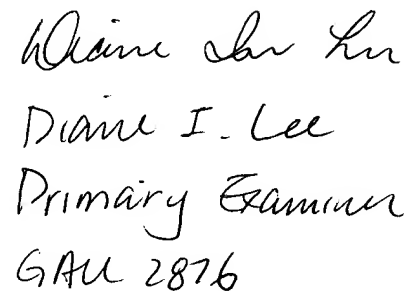 Diane
Diane I. Lee
Primary Examiner
GAU 2876